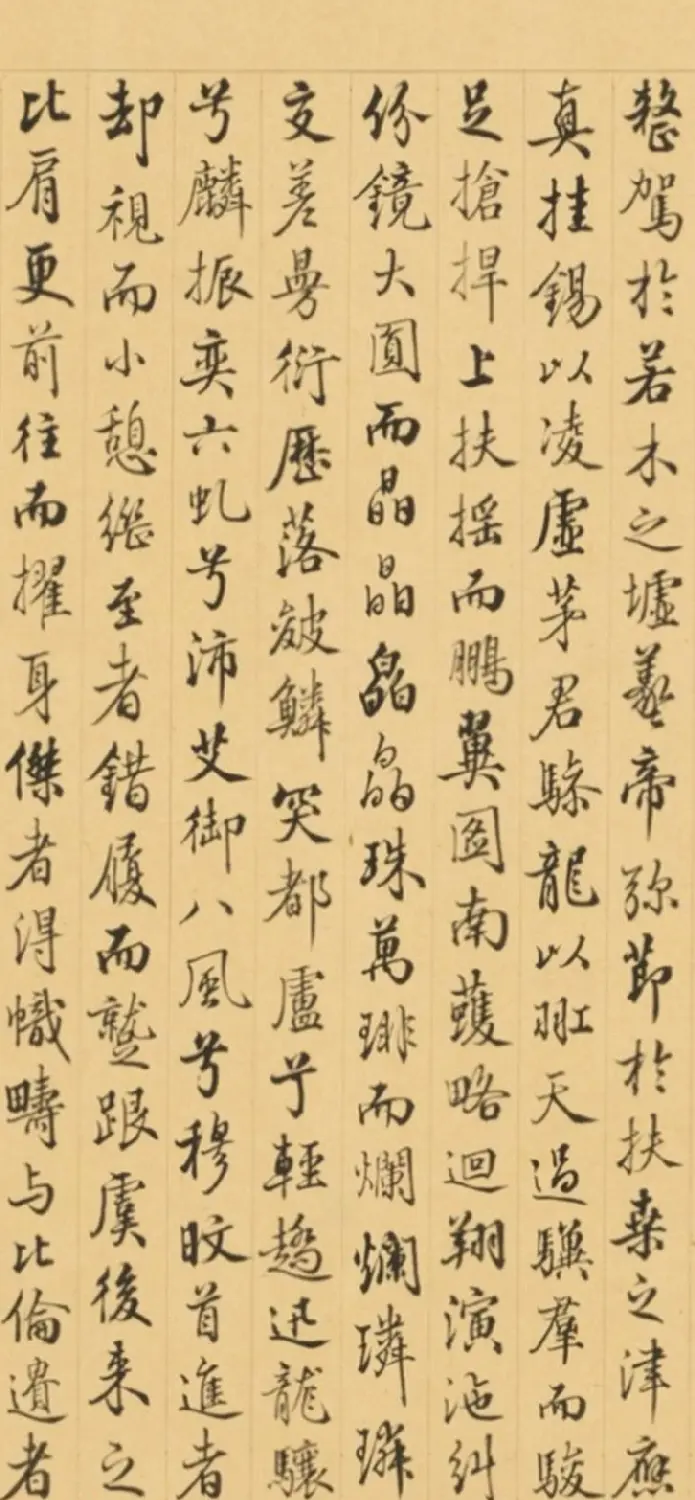 整駕於若木之墟羲帝弥節於扶桑之津應
真挂錫以凌虛茅君驂龍以羾天過驥羣而駿
足搶捍上扶摇而鵬翼圖南蒦略迴翔演沲糾
份鏡大圓而晶晶晶晶皛晶珠萬琲而爛爛璘璘
交差曼衍歷落皴鱗突都盧兮輕趫迅龍驤
兮麟振奕六虬兮沛艾御八風兮穆旼首進者
却視而小憩繼至者錯履而蹔跟虞後来之
比肩更前往而擢身傑者得幟疇与比倫遺者